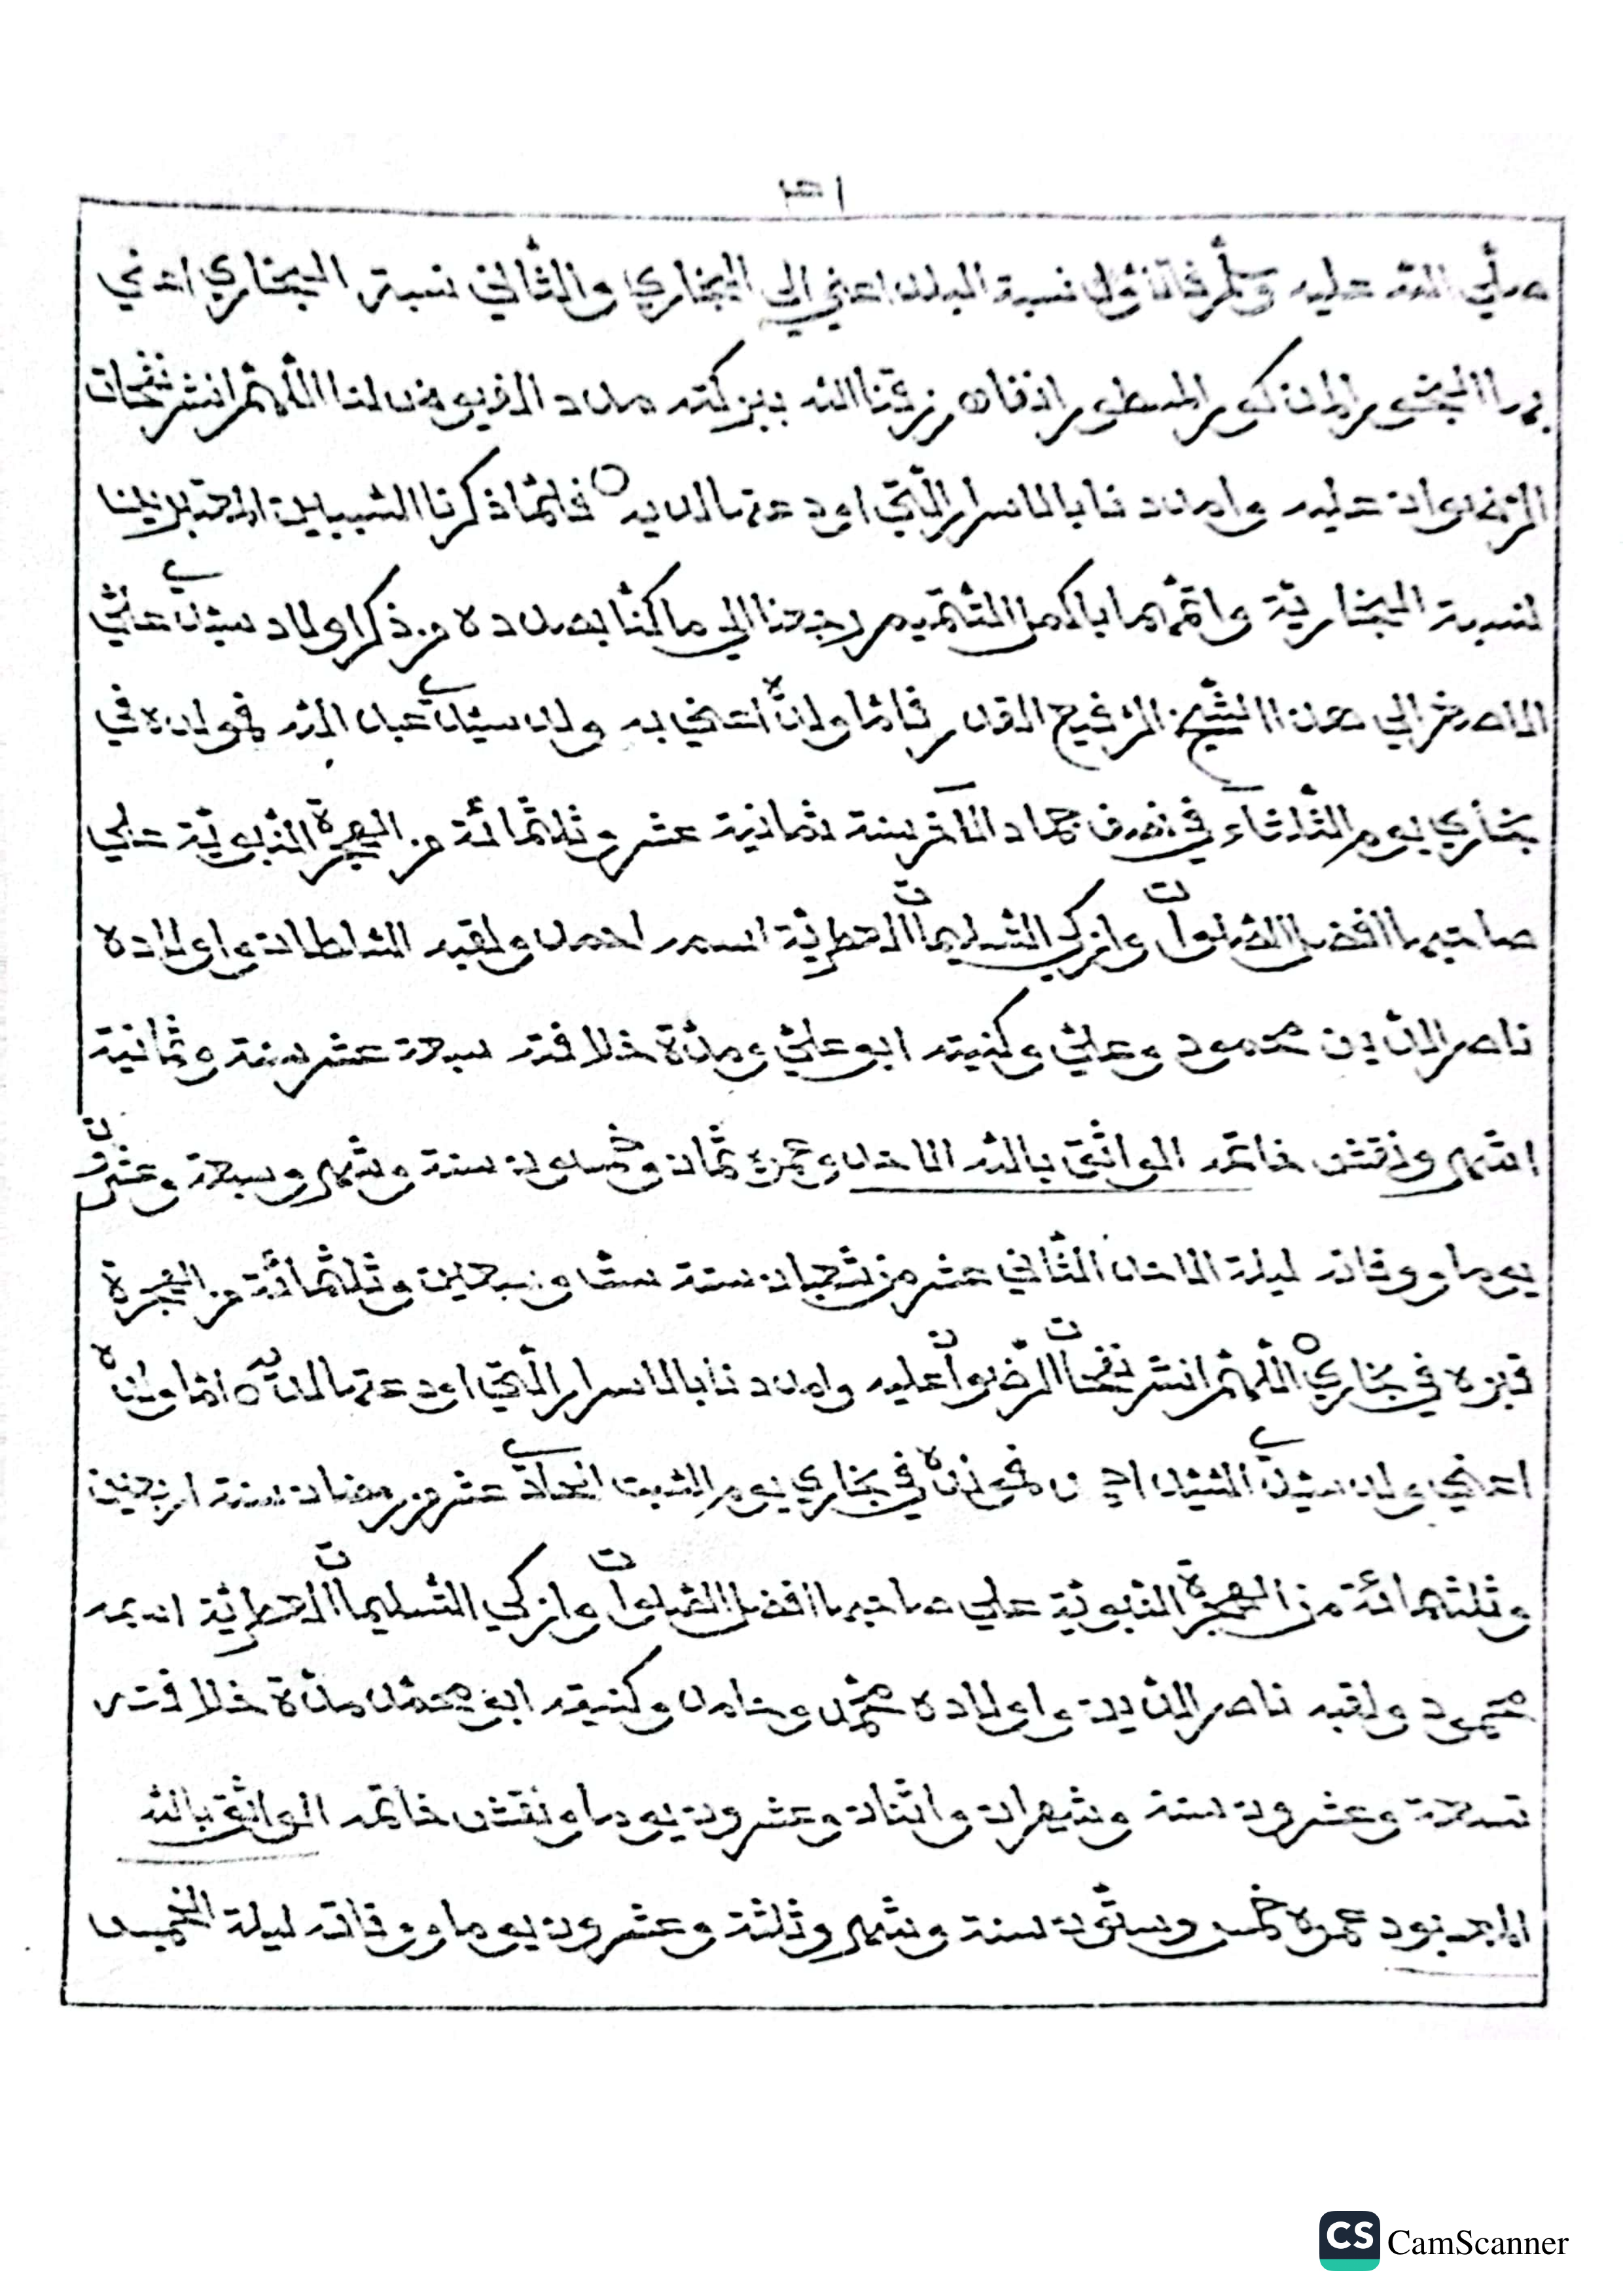 صلي الله عليه وسلم فالاول نسبة البلد اعني الي البخاري والثاني نسبة البخاري اعني
المذكور المسطور رزقنا الله ببركته مدد الفيوض لنا اللهم انشر نفحات
الرضوان عليه وامددنا بالاسرار التي اودعتها لديه فلما ذكرنا السببين
لنسبة البخارية واتمهما باكمل التتميم رجعنا الي ما كنا بصدده من ذكر اولاد سيدي علي
الاصغر الي هذا الشيخ الرفيع القدر فاما ولده اعني به ولد سيدي عبد الله فمولده في
بخاري يوم الثلاثاء في نصف جماد الاخر سنة ثمانية عشر وثلثمائة من الهجرة النبوية علي
صاحبها افضل الصلوات وازكي التسليمات العطرية اسمه احمد ولقبه السلطان واولاده
ناصر الدين محمود وعلي وكنيته ابو علي ومدة خلافته سبعة عشر سنة وثمانية
اشهر ونقش خاتمه الواثق بالله الاحد وعمره ثمان وخمسون سنة وشهر وسبعة وعشرون
يوما ووفاته ليلة الاحد الثاني عشر من شعبان سنة ست وسبعين وثلثمائة من الهجرة
قبره في بخاري اللهم انشر نفحات الرضوان عليه وامددنا بالاسرار التي اودعتها لديه اما ولده
اعني ولد سيدي السيد احمد فمولده في بخاري يوم السبت الحادي عشر من رمضان سنة اربعين
وثلثمائة من الهجرة النبوية علي صاحبها افضل الصلوات وازكي التسليمات العطرية اسمه
محمود ولقبه ناصر الدين واولاده محمد وحامد وكنيته ابو محمد مدة خلافته
تسعة وعشرون سنة وشهران واثنان وعشرون يوما ونقش خاتمه الواثق بالله
المعبود عمره خمس وستون سنة وشهر وثلثة وعشرون يوما ووفاته ليلة الخميس
CS CamScanner